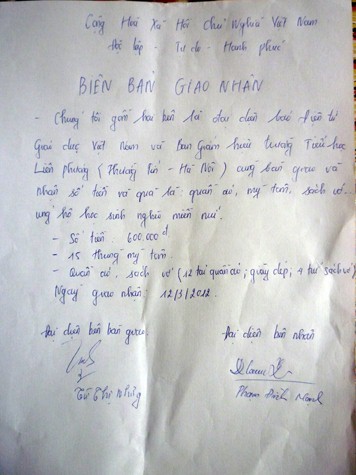 Cộng Hoà Xã Hội Chủ Nghĩa Việt Nam
Độc lập - Tự do - Hạnh phúc
BIÊN BẢN GIAO NHẬN
- Chúng tôi gồm hai bên là đại diện báo điện tử
Giáo dục Việt Nam và Ban Giám hiệu trường Tiểu học
Liên Phương (Thường Tín - Hà Nội) cùng bàn giao và
nhận số tiền và quà là quần áo, mỳ tôm, sách vở..
ủng hộ học sinh nghèo miền núi.
- Số tiền: 600.000đ
- 15 thùng mỳ tôm.
- Quần áo, sách vở (12 tải quần áo; giầy dép; 4 tải sách vở)
Ngày giao nhận: 12/3/2012.
Đại diện bên bàn giao
Đại diện bên nhận
Thị Nhung
Phạm Mạnh